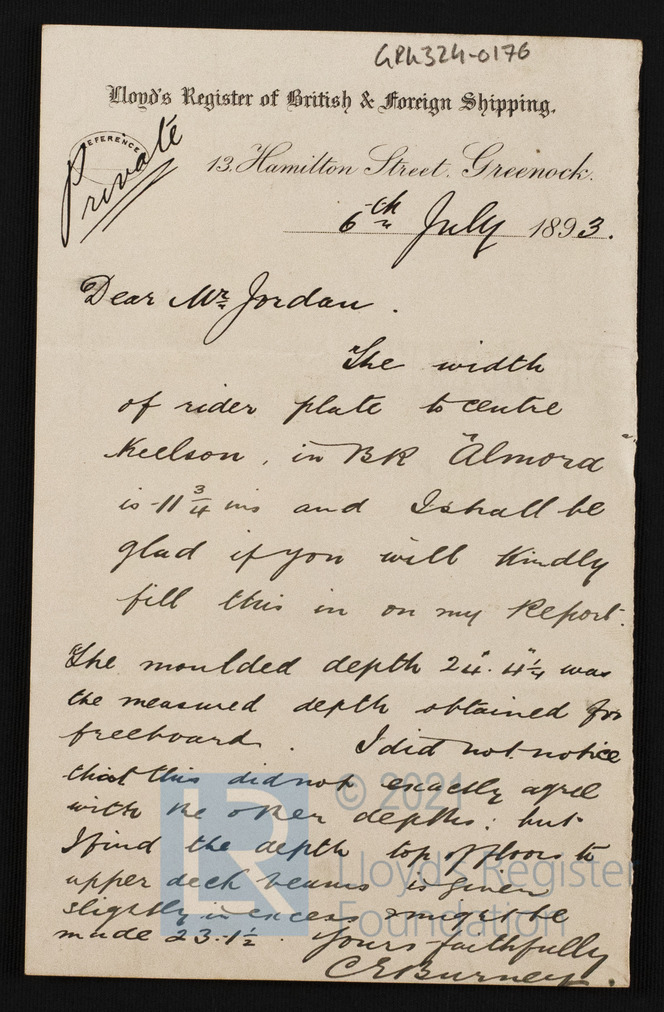 GRK324-0176
Lloyd's Register of British & Foreign Shipping.
REFERENCE
Private
13. Hamilton Street. Greenock.
6th July 1893.
Dear Mr Jordan.
The width
of rider plate to centre
Keelson, in BK "Almora"
is 11 3/4 ins and I shall be
glad if you will kindly
fill this in on my Report.
The moulded depth 24'. 4 1/4" was
the measured depth obtained for
freeboard. I did not notice
that this did not exactly agree
with the other depths: but
I find the depth top of floors to
upper deck beams is given
slightly in excess & might be
made 23-1 1/2. Yours faithfully
C E Burney.
LR
© 2021
Lloyd's Register
Foundation